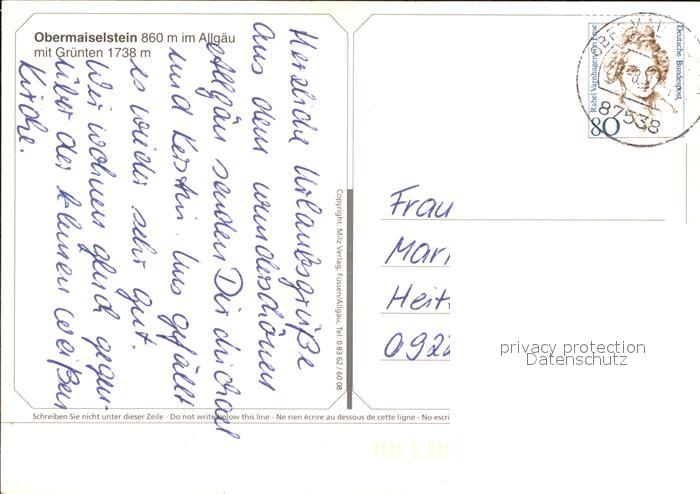 Obermaiselstein 860 m im Allgäu
mit Grünten 1738 m
Herzliche Urlaubsgrüße
aus dem wunderschönen
Allgäu senden Dir Michael
und Kerstin. Uns gefällt
es wieder sehr gut.
Wir wohnen gleich gegen-
über der kleinen weißen
Kirche.
Copyright: Milz Verlag, Füssen/Allgäu, Tel. 0 83 62 / 60 08
Deutsche Bundespost
Rahel Varnhagen von Ense
80
87538
Frau
Mari
Heit
0922
privacy protection
Datenschutz
Schreiben Sie nicht unter dieser Zeile - Do not write below this line - Ne rien écrire au dessous de cette ligne - No escri